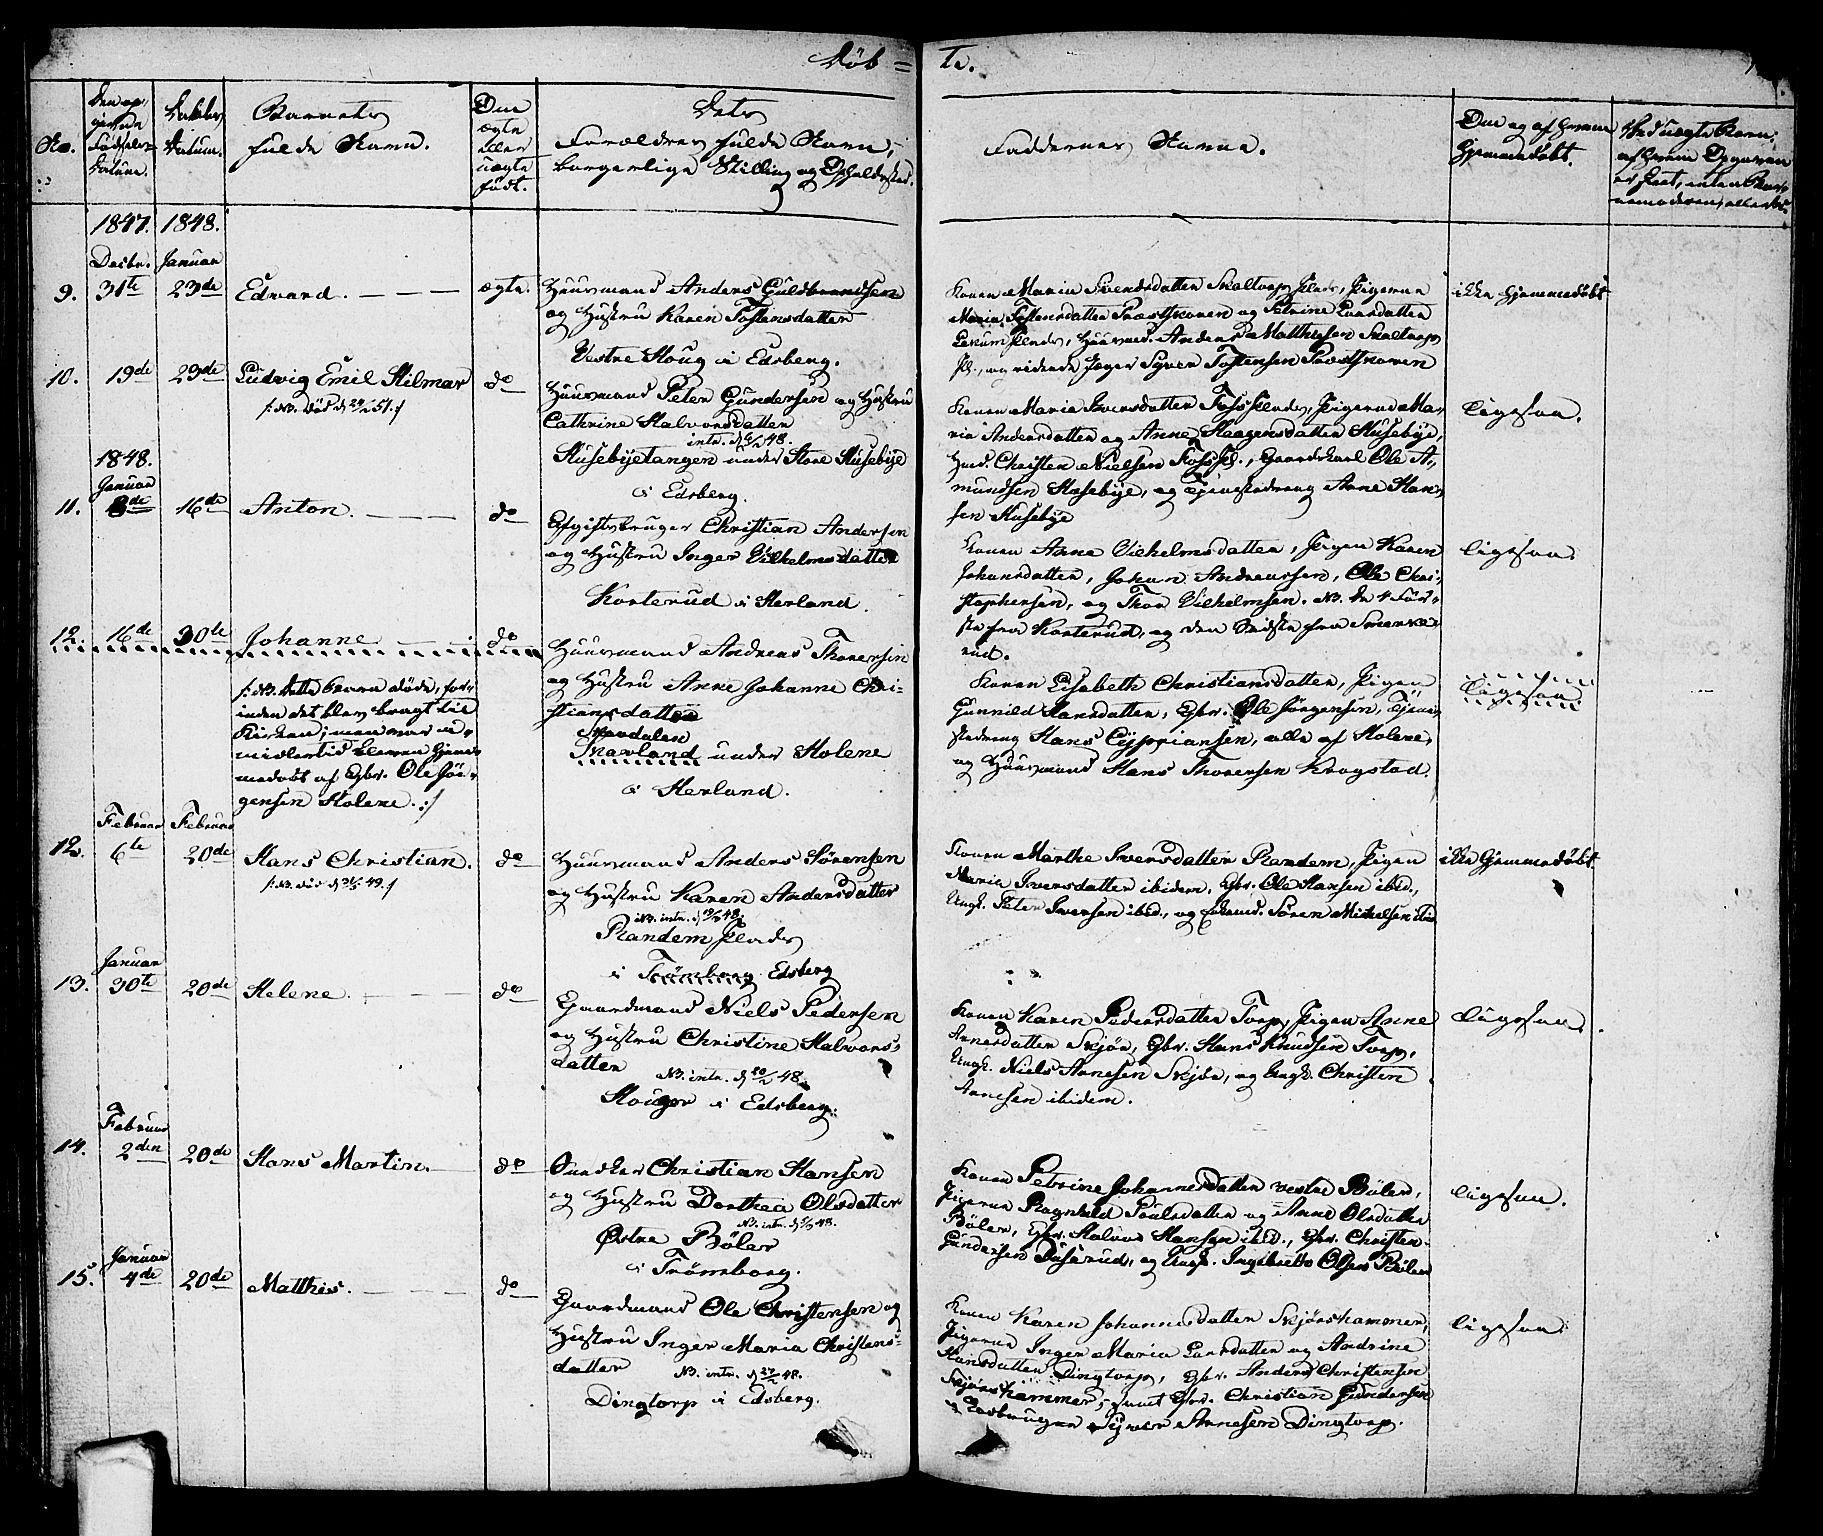 Døb = te.
No.
Den op-
givende
Fødsels-
datum.
Daabs
Datum.
Barnets
fulde Navn.
Om
ægte
eller
uægte
født.
Dets
Forældres fulde Navn,
borgerlige Stilling og Opholdssted.
Faddernes Navne.
Om og af hvem
hjemmedøbt.
1847. 1848.
Decbr. Januar
9. 31te 23de Edvard. ægte.
Huusmand Anders Guldbrandsen
og Hustru Karen Tostensdatter
Vestre Houg i Edsberg.
Konen Maria Svendsdatter Skaltorp Plads, Pigerne
Maria Tostensdatter Præstskoven og Petrine Larsdatter
Lekum Plads, Huusmd. Anders Matthisen Skaltorp
Pl., og ridende Jæger Syver Tostensen Præstskoven
ikke hjemmedøbt
10. 19de 23de Ludvig Emil Hilmar do
/: NB. død d 51. :/
Huusmand Peter Gundersen og Hustru
Cathrine Halvorsdatter
intr. d 6/2 48.
Husebyetangen under Store Husebye
i Edsberg.
Konen Maria Iversdatter Fossplads, Pigerne Ma-
ria Andersdatter og Anne Haagensdatter Husebye,
Hmd. Christen Nielsen Fosspl., Gaardskarl Ole A-
mundsen Husebye, og Tjenestedreng Arne Han-
sen Husebye
Ligesaa.
1848.
Januar
11. 3de 16de Anton. do
Afgiftsbruger Christian Andersen
og Hustru Inger Vilhelmsdatter
Korterud i Herland.
Konen Anne Vilhelmsdatter, Pigen Karen
Johansdatter, Johan Andreassen, Ole Chri-
stophersen, og Thor Vilhelmsen. NB. De 4 Før-
ste fra Korterud, og den Sidste fra Smerke-
rud.
ligesaa.
12. 16de 30te Johanne do
/: NB. Dette barn døde, for-
inden det blev bragt til
Kirken; men var i-
midlertid bleven hjem-
medøbt af Gbr. Ole Jør-
gensen Holene. :/
Huusmand Andreas Thoresen
og Hustru Anne Johanne Chri-
stiansdatter
Skavdalen
Skavland under Holene
i Herland.
Konen Lisabeth Christiansdatter, Pigen
Gunnild Hansdatter, Gbr. Ole Jørgensen, Tjene-
stedreng Hans Cypriansen, alle af Holene,
og Huusmand Hans Thoresen Krogstad.
Ligesaa
Februar Februar
12. 6te 20de Hans Christian. do
/: NB. død d 49. :/
Huusmand Anders Sørensen
og Hustru Karen Andersdatter
NB. intr. d 48.
Randem Plads
i Trømborg Edsberg
Konen Marthe Iversdatter Randem, Pigen
Maria Iversdatter ibidem, Gbr. Ole Hansen ibid.,
Ungk. Peter Iversen ibid., og Søren Michelsen ibid
ikke hjemmedøbt
Januar
13. 30te 20de Helene. do
Gaardmand Niels Pedersen
og Hustru Christine Halvors-
datter
NB. intr. d 20/2 48.
Houger i Edsberg.
Konen Karen Pedersdatter Torp, Pigen Anne
Arnesdatter Skjør, Gbr. Hans Knudsen Torp,
Ungk. Niels Arnesen Skjør, og Ungk. Christen
Arnesen ibidem.
Ligesaa.
Februar
14. 2den 20de Hans Martin. do
Snedker Christian Hansen
og Hustru Dorthea Olsdatter
NB. intr. d 48.
Østre Bøler
i Trømborg.
Konen Petrine Johannesdatter vestre Bøler,
Pigerne Ragnhild Poulsdatter og Anne Olsdatter
Bøler, Gbr. Halvor Hansen ibid., Gbr. Christen
Gundersen Buserud, og Ungk. Ingebret Olsen Bøler
ligesaa.
Januar
15. 4de 20de Matthis. do
Gaardmand Ole Christensen og
Hustru Inger Maria Christens-
datter
NB. intr. d 27/2 48.
Dingtorp i Edsberg.
Konen Karen Johannesdatter Skjørshammer,
Pigerne Inger Maria Larsdatter og Andrine
Hansdatter Dingtorp, Gbr. Anders Christensen
Skjørshammer, samt Gbr. Christian Gundersen
og Gaardbruger Syver Arnesen Dingtorp.
ligesaa.